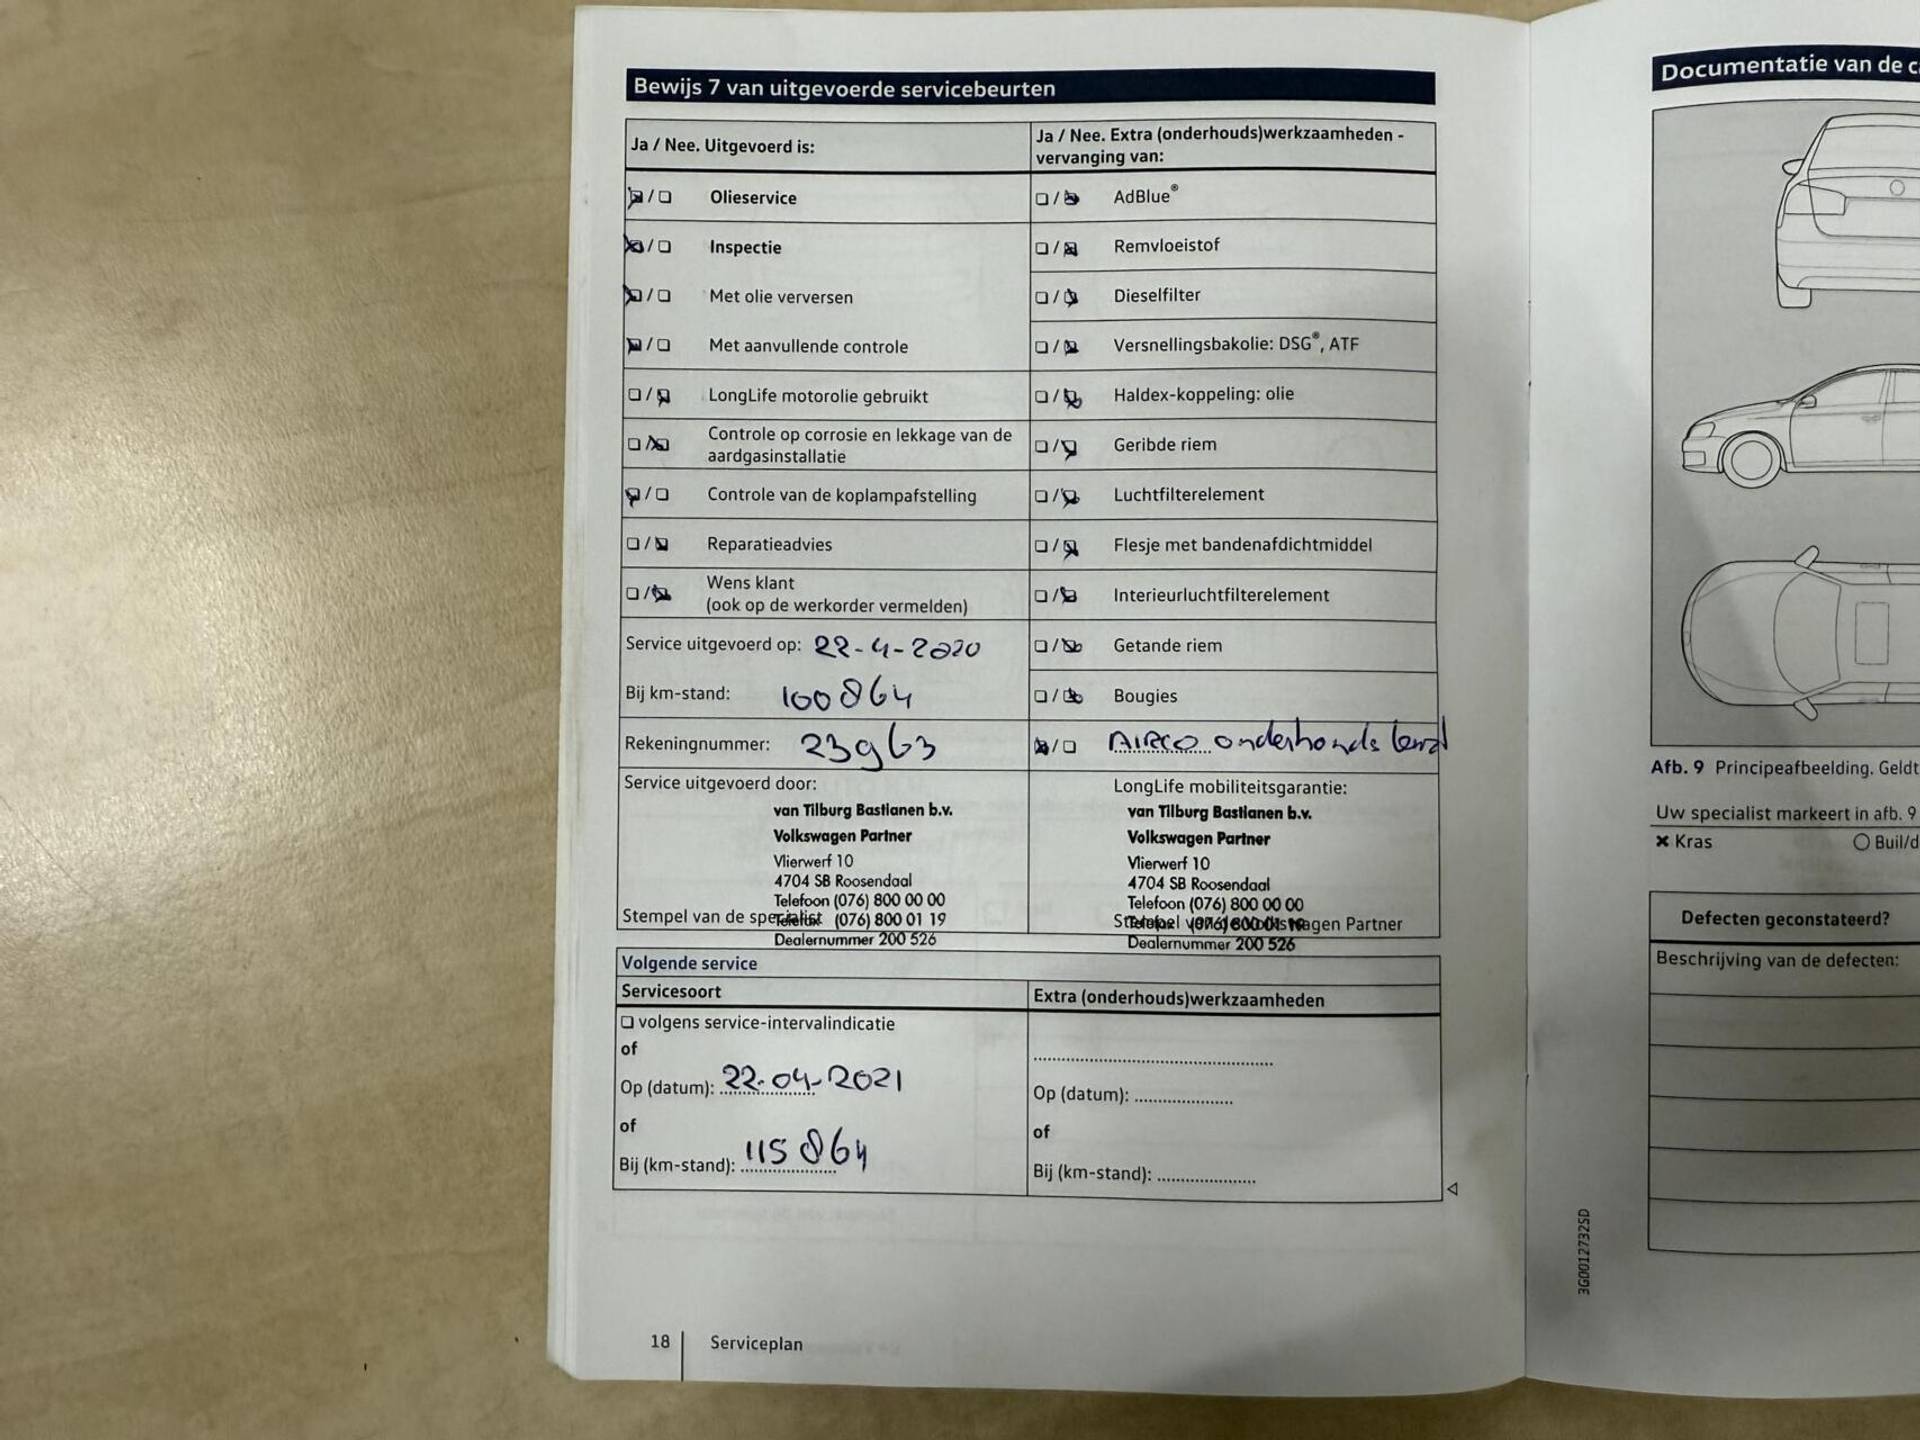 Bewijs 7 van uitgevoerde servicebeurten
Ja / Nee. Uitgevoerd is:
Olieservice
Inspectie
Met olie verversen
Met aanvullende controle
LongLife motorolie gebruikt
Controle op corrosie en lekkage van de
aardgasinstallatie
Controle van de koplampafstelling
Reparatieadvies
Wens klant
(ook op de werkorder vermelden)
Service uitgevoerd op: 22-4-2020
Bij km-stand: 100864
Rekeningnummer: 23963
Service uitgevoerd door:
van Tilburg Bastianen b.v.
Volkswagen Partner
Vlierwerf 10
4704 SB Roosendaal
Telefoon (076) 800 00 00
Stempel van de specialist
Telefax (076) 800 01 19
Dealernummer 200 526
Ja / Nee. Extra (onderhouds)werkzaamheden -
vervanging van:
AdBlue®
Remvloeistof
Dieselfilter
Versnellingsbakolie: DSG®, ATF
Haldex-koppeling: olie
Geribde riem
Luchtfilterelement
Flesje met bandenafdichtmiddel
Interieurluchtfilterelement
Getande riem
Bougies
AIRCO onderhouds
LongLife mobiliteitsgarantie:
van Tilburg Bastianen b.v.
Volkswagen Partner
Vlierwerf 10
4704 SB Roosendaal
Telefoon (076) 800 00 00
Stempel van de Volkswagen Partner
Telefax (076) 800 01 19
Dealernummer 200 526
Volgende service
Servicesoort
volgens service-intervalindicatie
of
Op (datum): 22-04-2021
of
Bij (km-stand): 115864
Extra (onderhouds)werkzaamheden
Op (datum):
of
Bij (km-stand):
18
Serviceplan
Documentatie van de
Afb. 9 Principeafbeelding. Geldt
Uw specialist markeert in afb. 9
Kras
Buil/d
Defecten geconstateerd?
Beschrijving van de defecten:
3G0012732SD